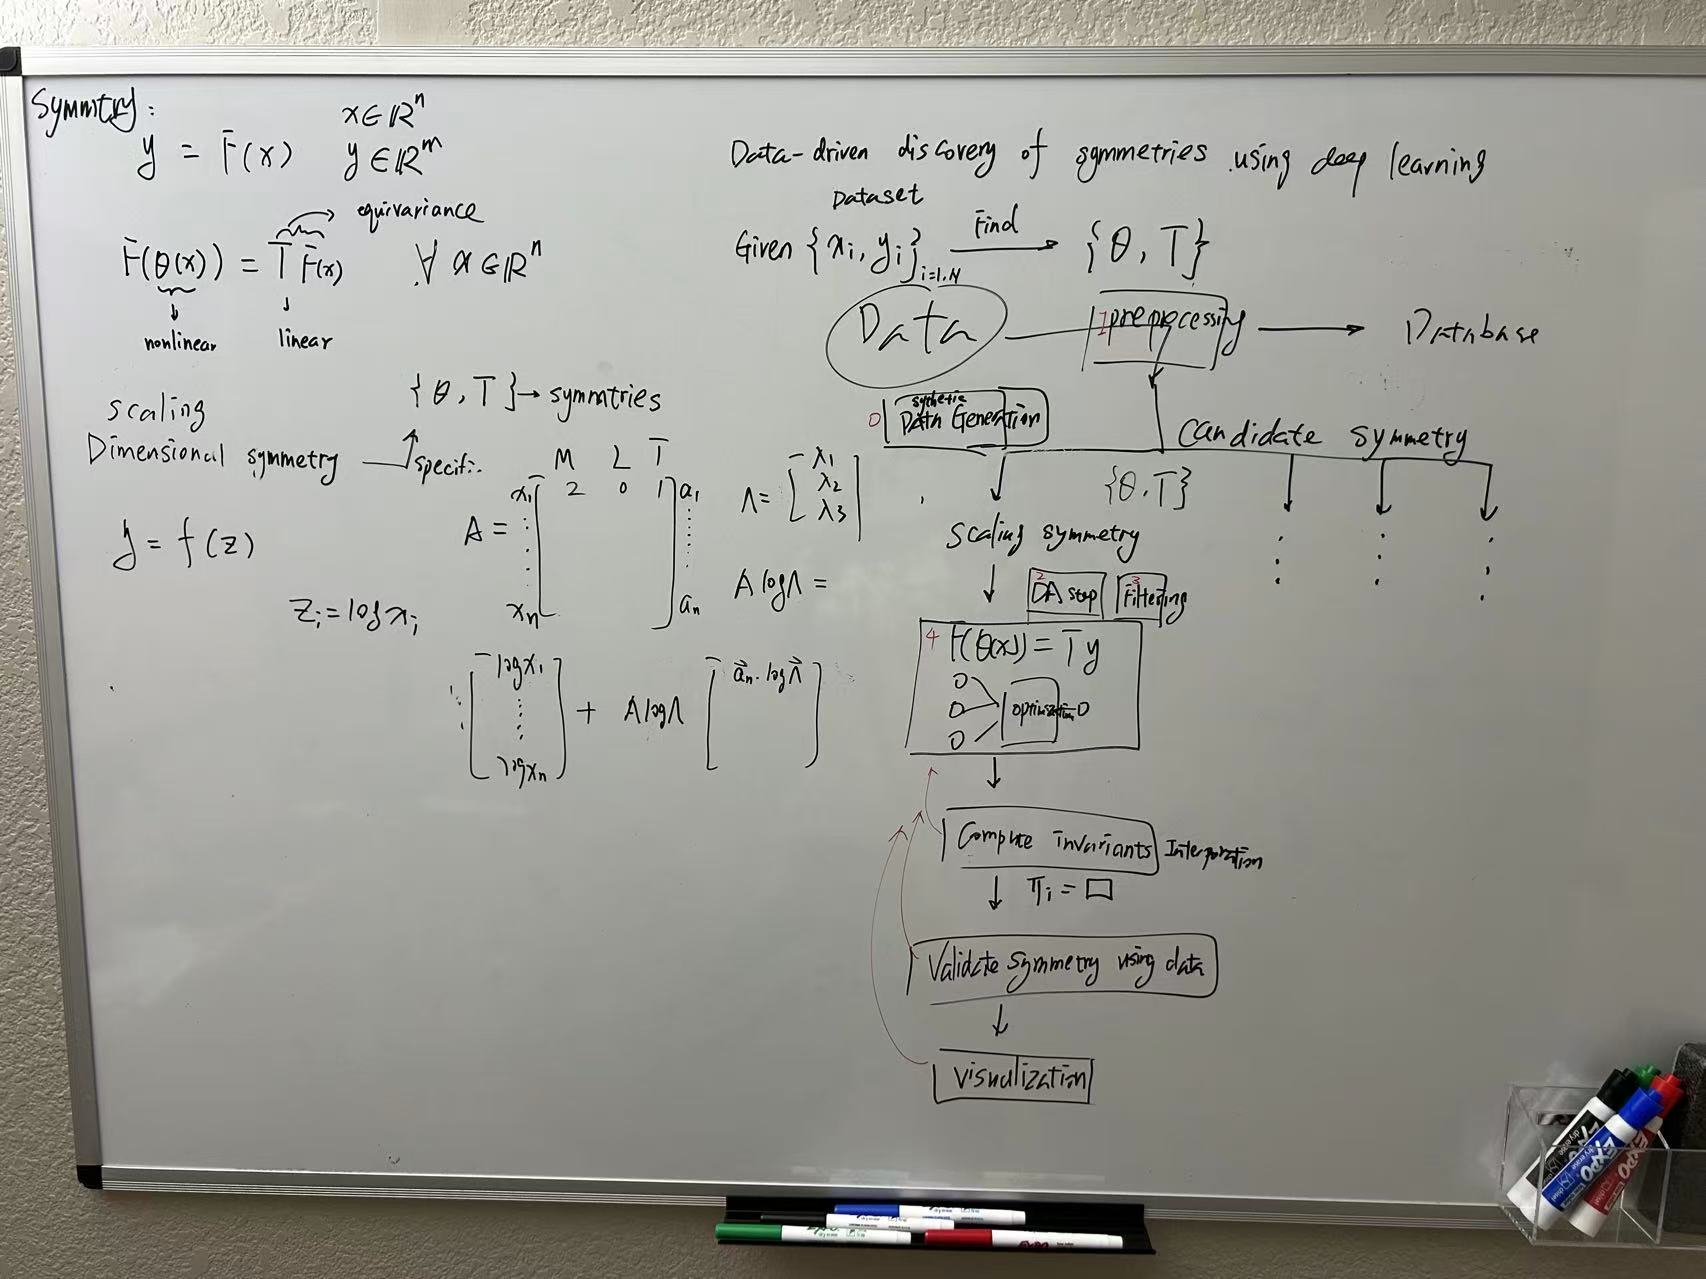 Symmtry:
x∈ℝⁿ
y = F(x) y∈ℝᵐ
equivariance
F(θ(x)) = T F(x) ∀ x∈ℝⁿ
nonlinear linear
{θ, T} → symmtries
scaling
Dimensional symmetry → specific
y = f(z)
zᵢ = log xᵢ
M L T
x₁ 2 0 1 a₁
A =
xₙ aₙ
Λ = [λ₁
λ₂
λ₃]
A logΛ =
[log x₁
log xₙ] + A logΛ [a⃗ₙ · logΛ⃗]
Data-driven discovery of symmetries using deep learning
Dataset
Given {xᵢ, yᵢ}i=1..N Find → {θ, T}
Data 1 preprocessing → Database
0 Data Generation
Candidate symmetry
{θ, T}
Scaling symmetry
2 DA step 3 Filtering
4 F(θ(x)) = T y
Compute invariants
πᵢ = □
Validate symmetry using data
Visualization
EXPO
EXPO
EXPO